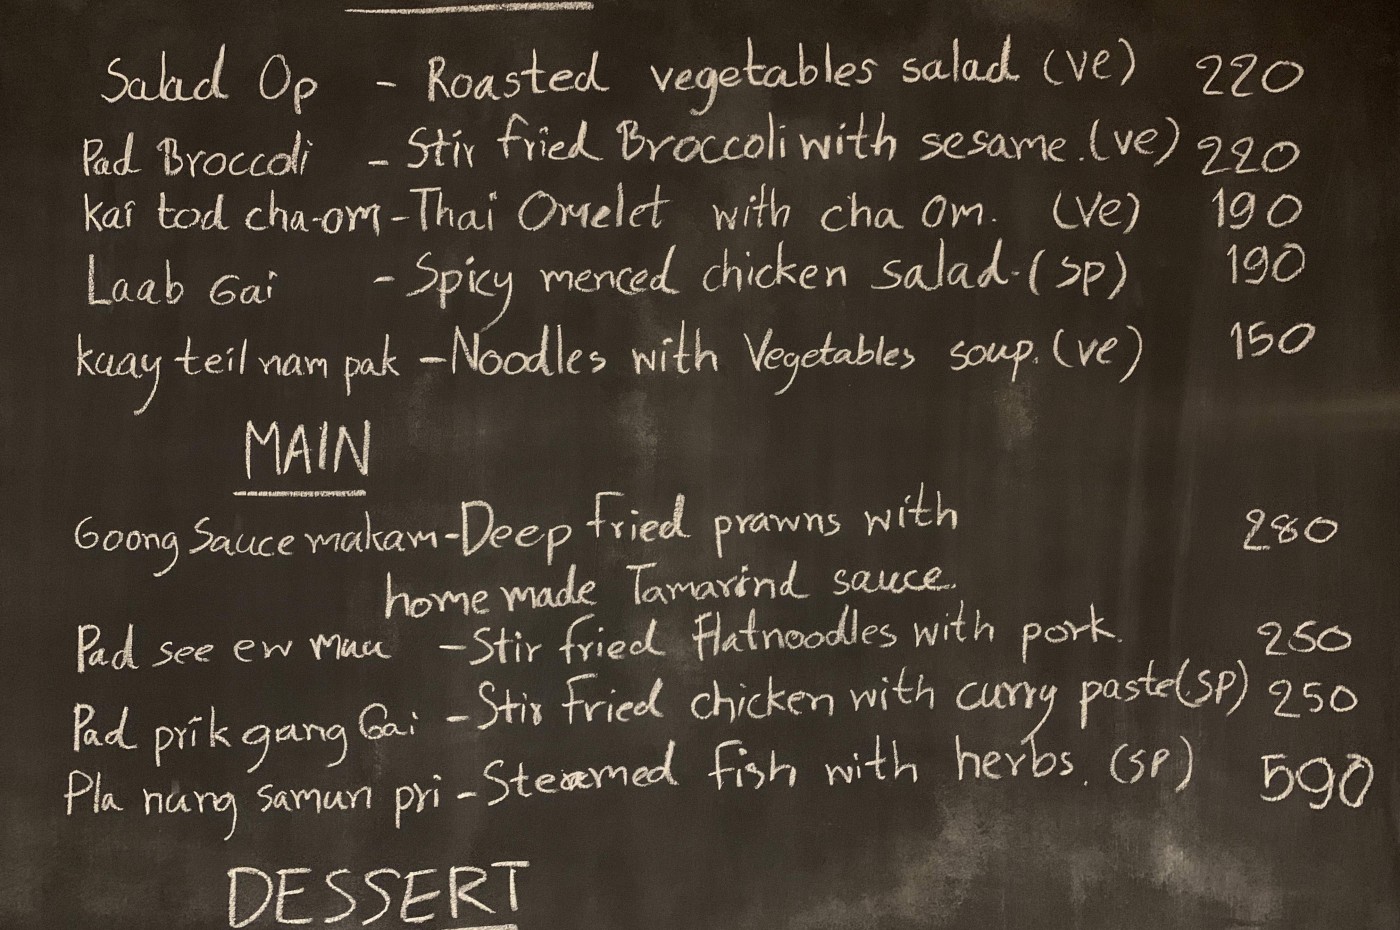 Salad Op - Roasted vegetables salad (ve) 220
Pad Broccoli - Stir fried Broccoli with sesame. (ve) 220
kai tod cha-om - Thai Omelet with cha om. (ve) 190
Laab Gai - Spicy menced chicken salad. (SP) 190
kuay teil nam pak - Noodles with Vegetables soup. (ve) 150
MAIN
Goong Sauce makam - Deep fried prawns with 280
home made Tamarind sauce.
Pad see ew muu - Stir fried flatnoodles with pork. 250
Pad prik gang Gai - Stir fried chicken with curry paste (SP) 250
Pla nung samun pri - Steamed fish with herbs. (SP) 590
DESSERT